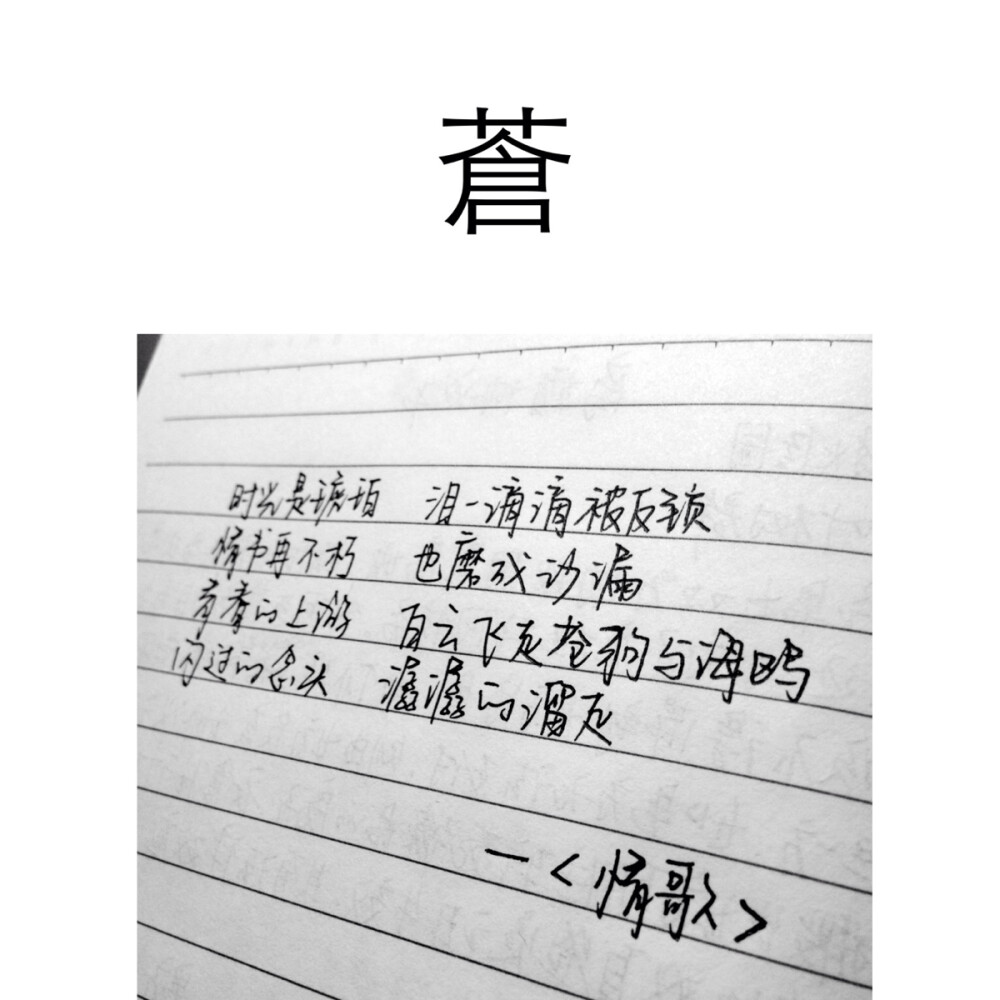 蒼
时光是琥珀 泪一滴滴被反锁
情书再不朽 也磨成沙漏
青春的上游 白云飞走苍狗与海鸥
闪过的念头 潺潺的溜走
—<情歌>